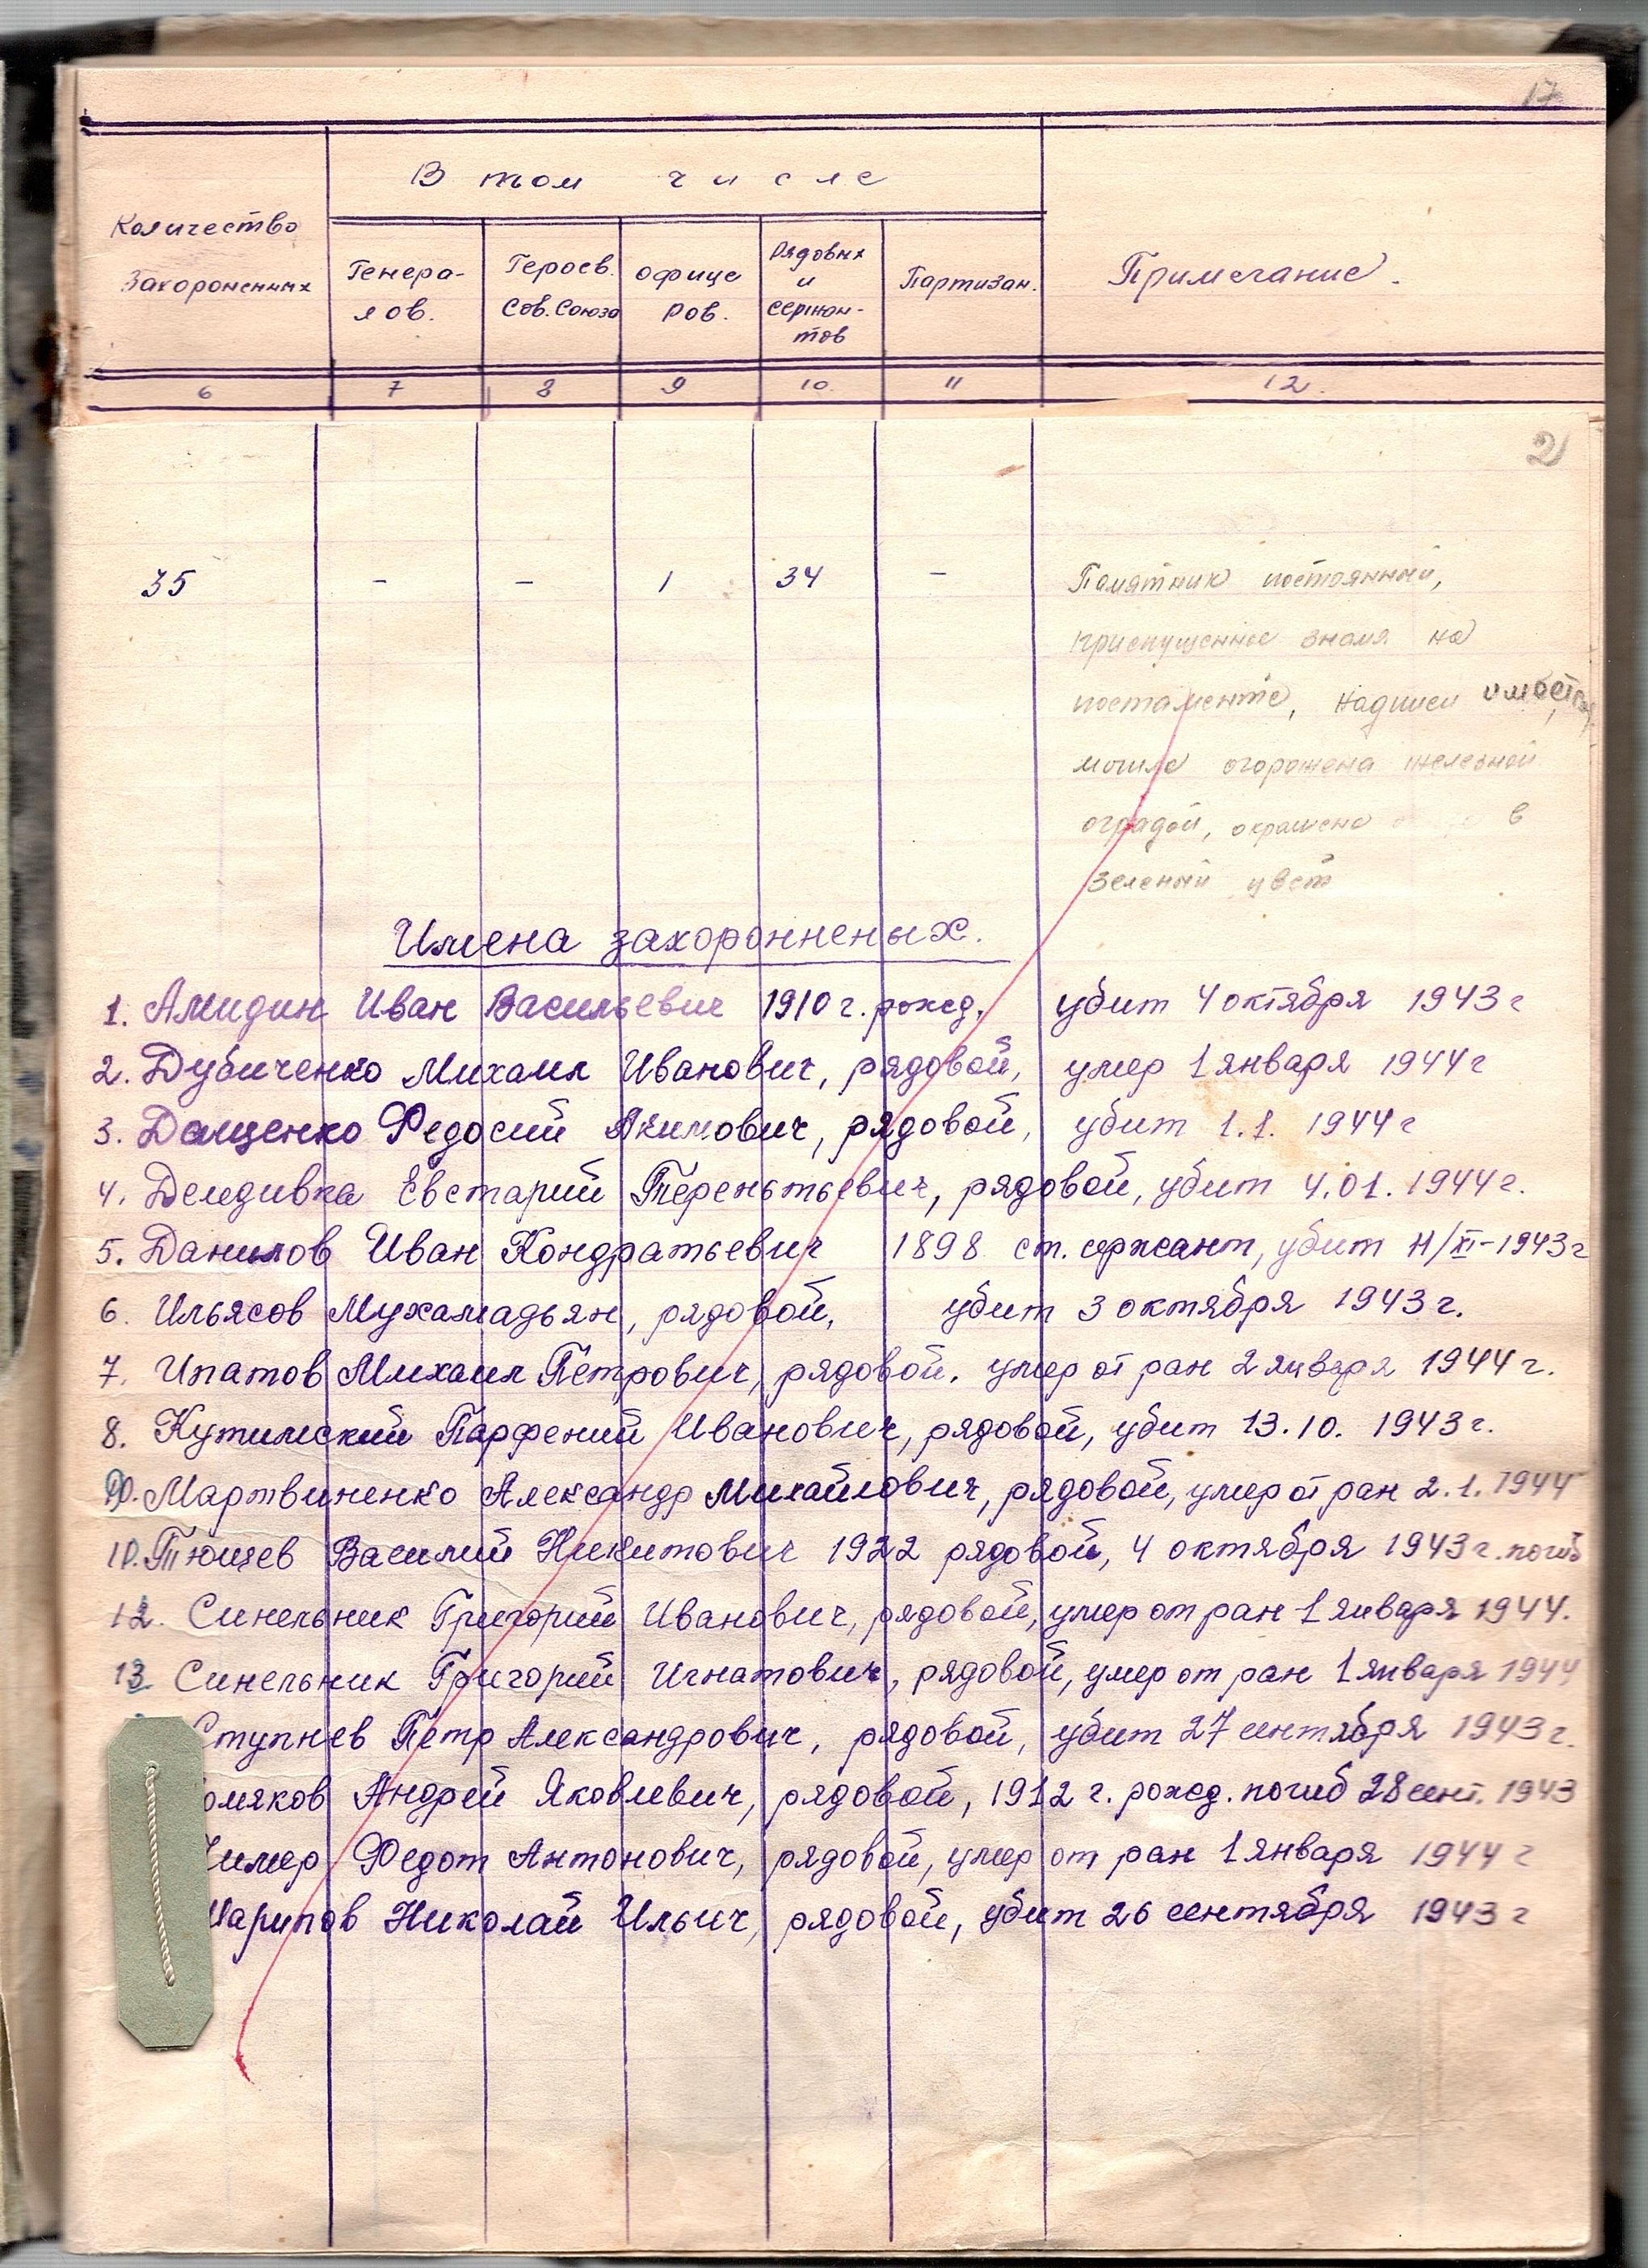 17
В том числе
Количество
Захороненных
Генера-
лов.
Героев.
Сов. Союза
Офице
ров.
Рядовых
и
Сержан-
тов
Партизан.
Примечание.
6 7 8 9 10. 11 12.
2
35 - - 1 34 -
Памятник постоянный,
приспущенное знамя на
постаменте, надписи имеются,
могила огорожена железной
оградой, окрашена в
зеленый цвет
Имена захоронненых.
1. Амидин Иван Васильевич 1910 г. рожд. убит 4 октября 1943 г
2. Дубиченко Михаил Иванович, рядовой, умер 1 января 1944 г
3. Федосий Акимович, рядовой, убит 1.1. 1944 г
4. Демдивка Евстарий Терентьевич, рядовой, убит 4.01. 1944 г.
5. Данилов Иван Кондратьевич 1898 ст. сержант, убит /XI-1943 г
6. Ильясов Мухамадьян, рядовой, убит 3 октября 1943 г.
7. Ипатов Михаил Петрович, рядовой. умер от ран 2 января 1944 г.
8. Кутимский Парфений Иванович, рядовой, убит 13.10. 1943 г.
Мартвиненко Александр Михайлович, рядовой, умер от ран 2.1. 1944
Тющев Василий Никитович 1922 рядовой, 4 октября 1943 г. погиб
12. Синельник Григорий Иванович, рядовой, умер от ран 1 января 1944.
13 Синельник Григорий Игнатович, рядовой, умер от ран 1 января 1944
Ступнев Петр Александрович, рядовой, убит 27 сентября 1943 г.
омяков Андрей Яковлевич, рядовой, 1912 г. рожд. погиб 28 сент. 1943
Федот Антонович, рядовой, умер от ран 1 января 1944 г
Шарипов Николай Ильич, рядовой, убит 26 сентября 1943 г